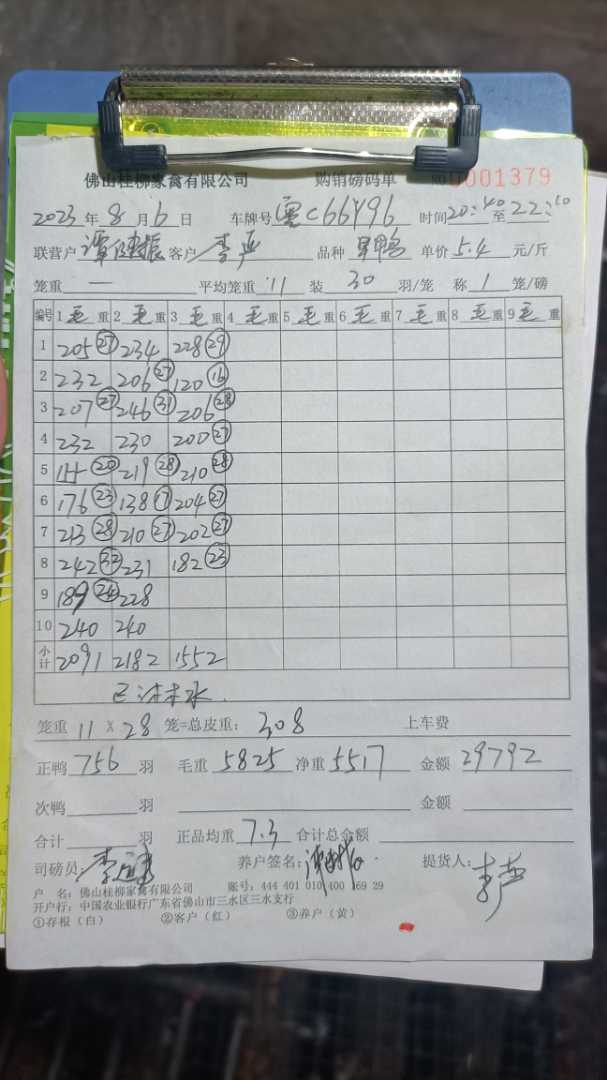 佛山桂柳家禽有限公司 购销磅码单 0001379
2023年8月6日 车牌号 粤C66Y96 时间20:40至22:10
联营户 谭健振 客户 李 品种 旱鸭 单价5.4元/斤
笼重 — 平均笼重 11 装 30 羽/笼 称 1 笼/磅
编号 1毛重 2毛重 3毛重 4毛重 5毛重 6毛重 7毛重 8毛重 9毛重
1 205㉗ 234 228㉙
2 232 206㉗ 120⑯
3 207㉗ 246㉛ 206㉘
4 232 230 200㉗
5 144⑳ 219㉘ 210㉘
6 176㉓ 138⑰ 204㉗
7 213㉘ 210㉗ 202㉗
8 242㉜ 231 182㉓
9 189㉔ 228
10 240 240
小计 2091 2182 1552
水
笼重 11 X 28 笼=总皮重: 308 上车费
正鸭 756 羽 毛重 5825 净重 5517 金额 29792
次鸭 羽 金额
合计 羽 正品均重 7.3 合计总金额
司磅员: 李 养户签名: 提货人: 李
户 名: 佛山桂柳家禽有限公司 账号: 444 401 010 400 69 29
开户行: 中国农业银行广东省佛山市三水区三水支行
①存根(白) ②客户(红) ③养户(黄)